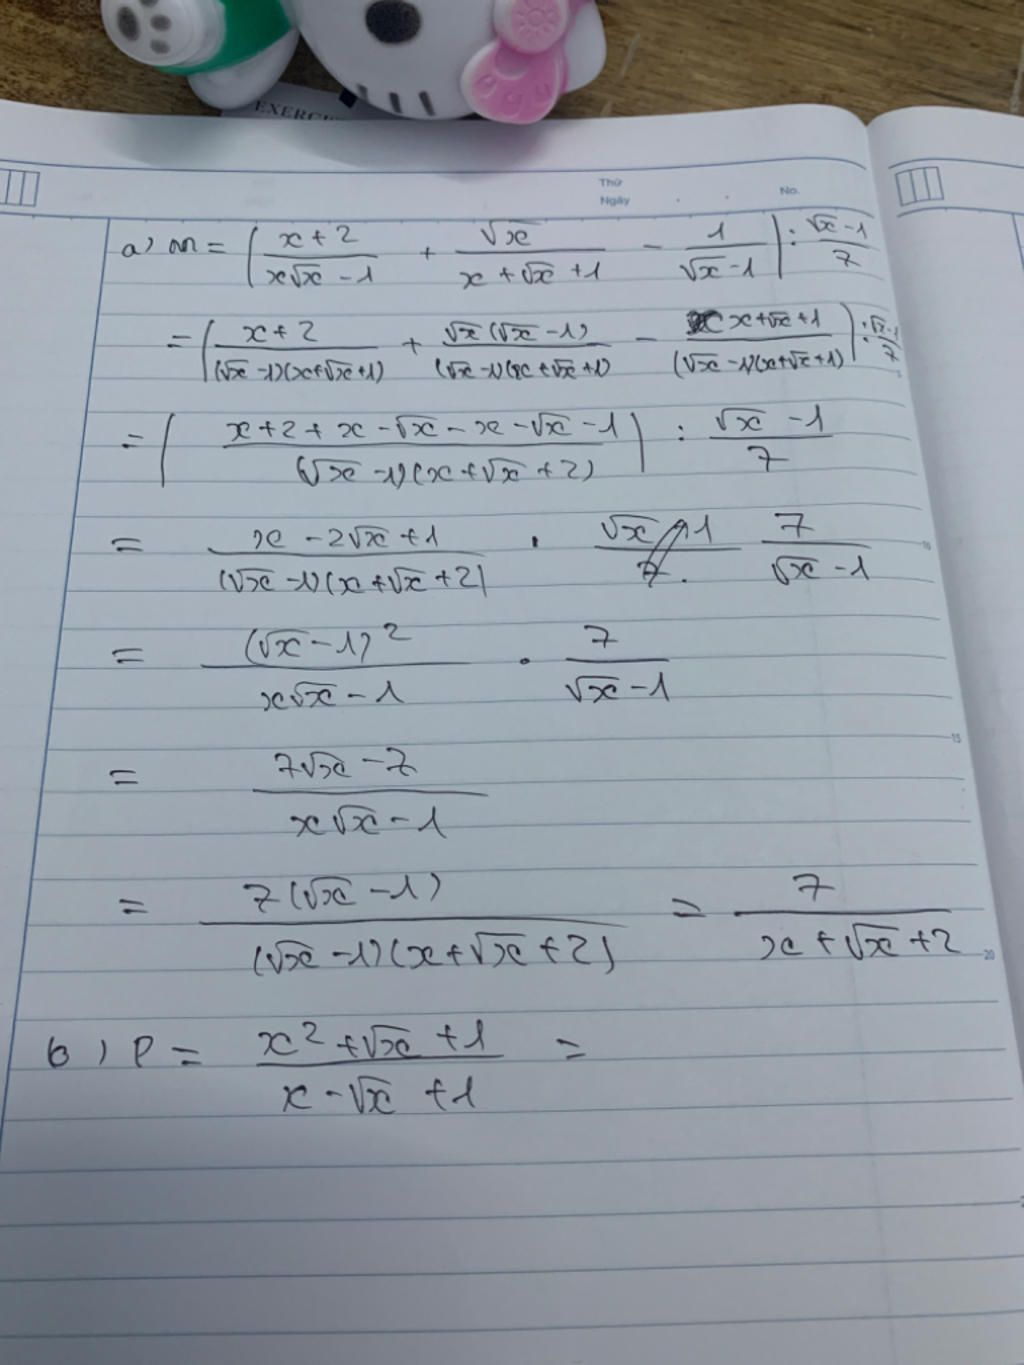 EXERCI
Thứ
Ngày
No.
a) m = ( (x+2)/(x√x - 1) + √x/(x + √x + 1) - 1/(√x - 1) ) : (√x - 1)/7
= ( (x+2)/((√x - 1)(x+√x+1)) + √x(√x - 1)/((√x - 1)(x+√x+1)) - (x+√x+1)/((√x - 1)(x+√x+1)) ) : (√x - 1)/7
= ( (x+2+x-√x-x-√x-1)/((√x - 1)(x+√x+2)) ) : (√x - 1)/7
= (x - 2√x + 1)/((√x - 1)(x+√x+2)) . 7/(√x - 1)
= (√x - 1)²/(x√x - 1) . 7/(√x - 1)
= (7√x - 7)/(x√x - 1)
15
= 7(√x - 1)/((√x - 1)(x+√x+2)) = 7/(x+√x+2)
20
b) P = (x² + √x + 1)/(x - √x + 1) =